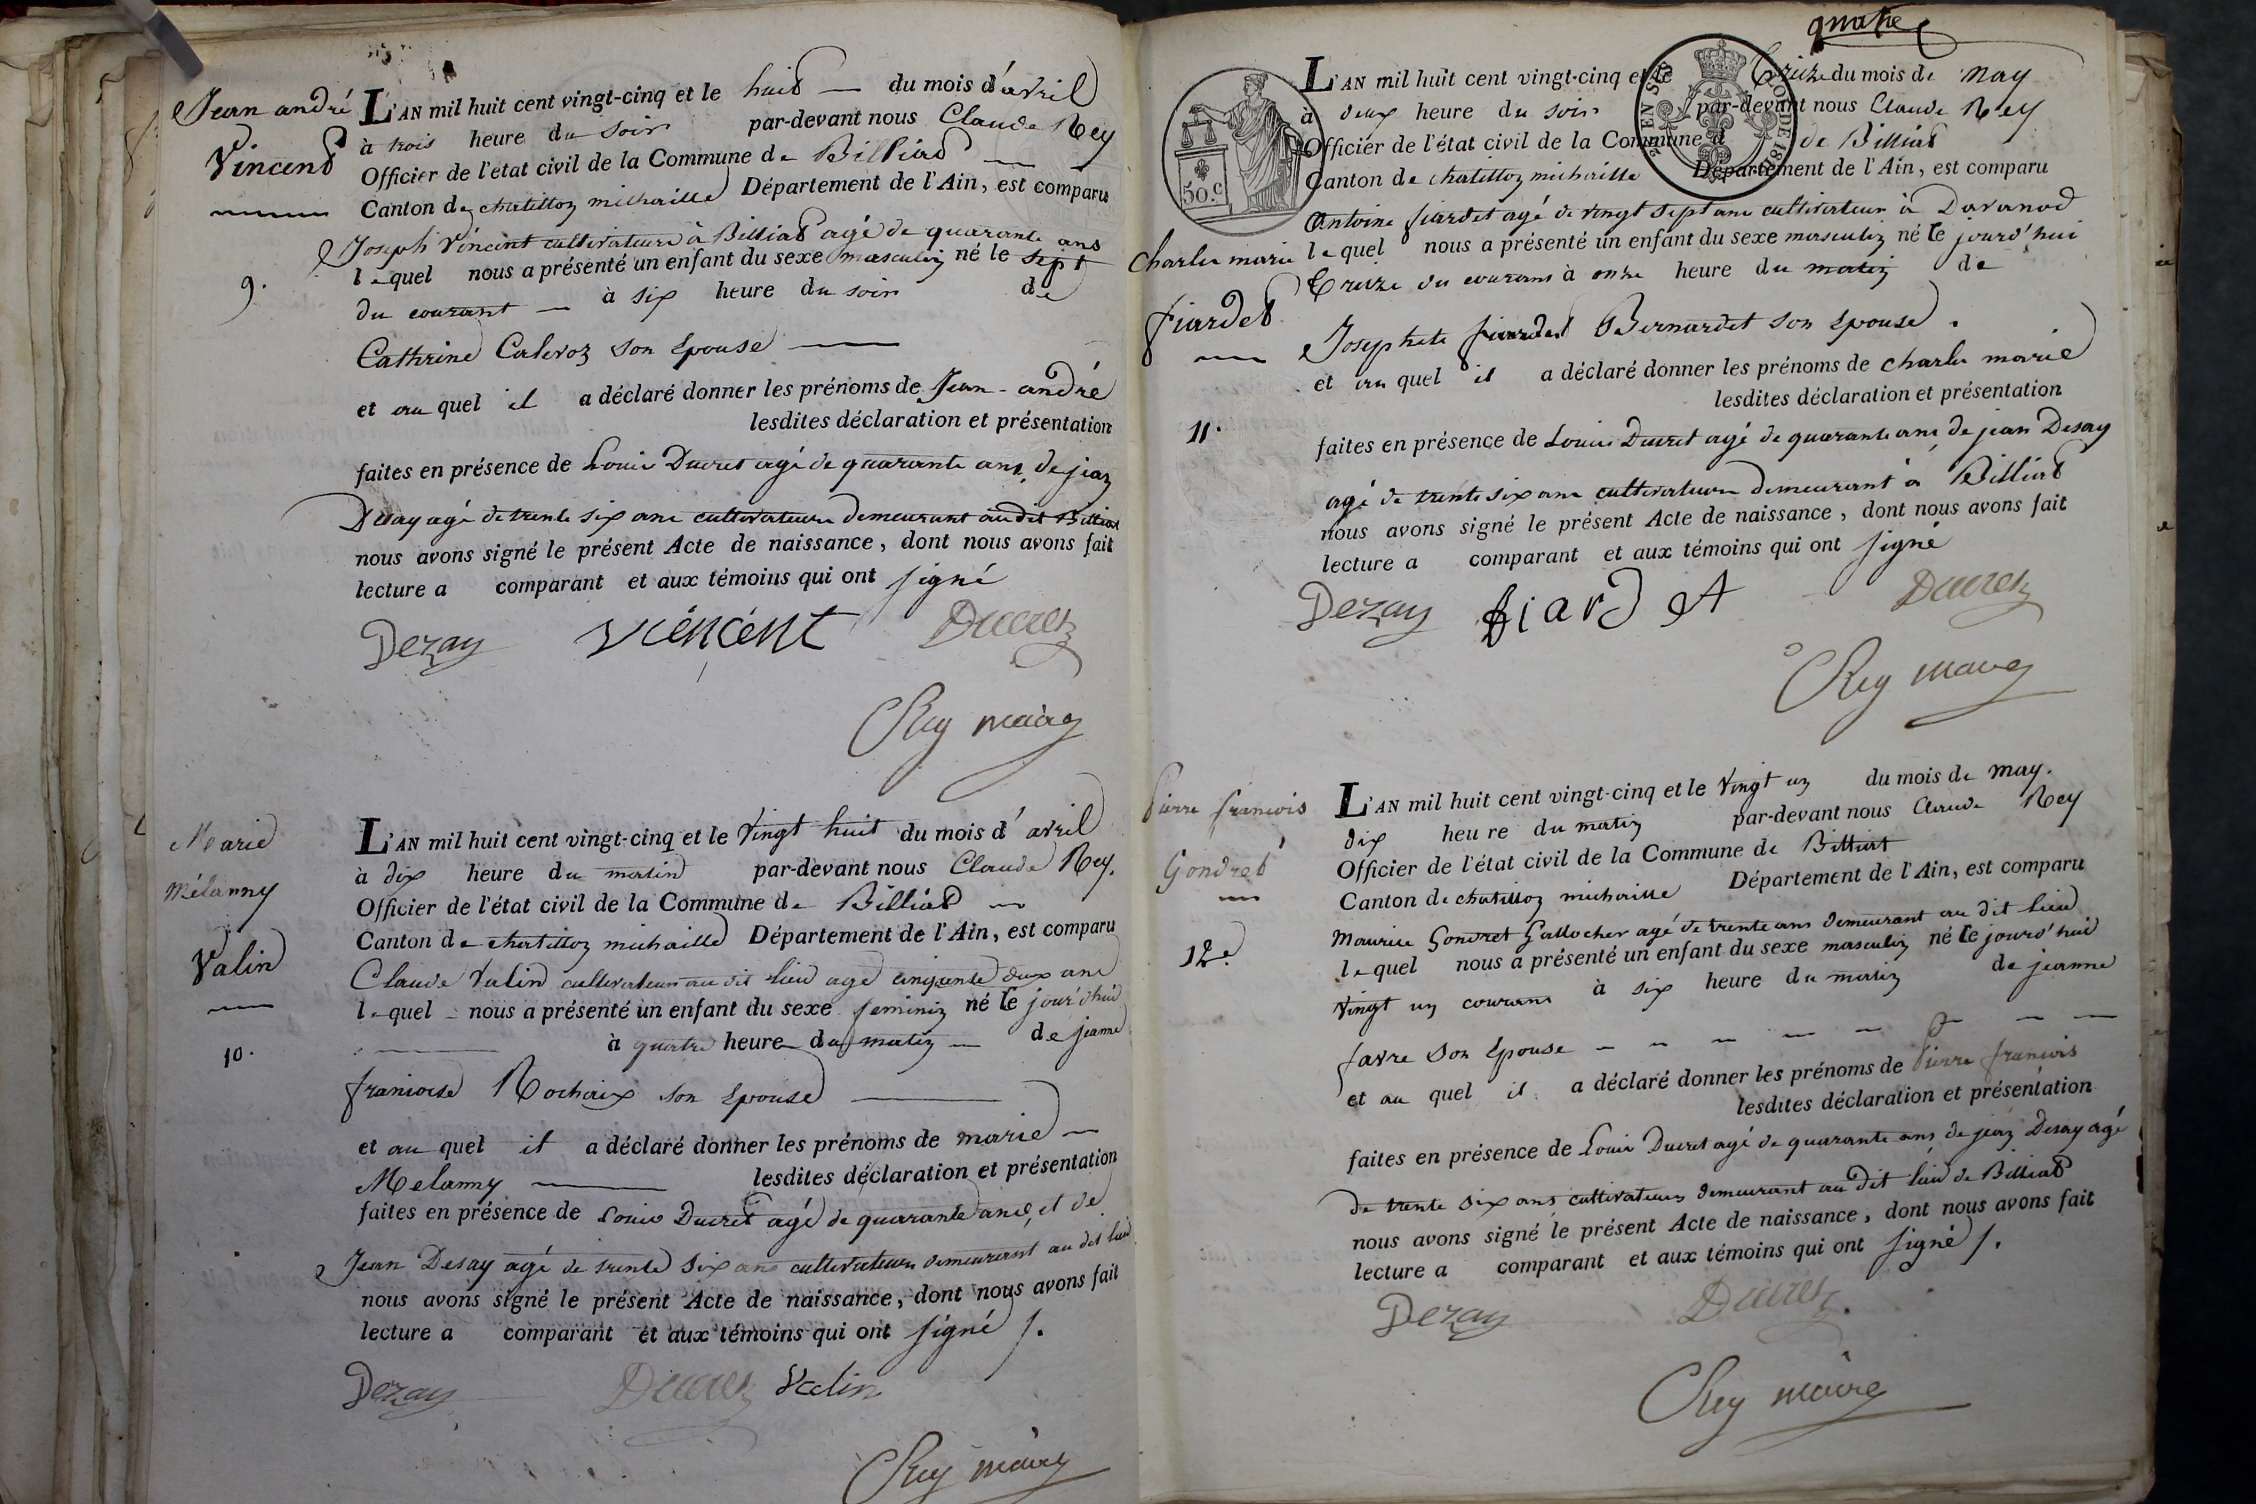 Jean andré
Vincent
9.
L'AN mil huit cent vingt-cinq et le huit du mois d'avril
à trois heure du soir par-devant nous Claude Rey
Officier de l'etat civil de la Commune de Billiat
Canton de chatillon michaille Département de l'Ain, est comparu
Joseph Vincent cultivateur à Billiat agé de quarante ans
lequel nous a présenté un enfant du sexe masculin né le sept
du courant à six heure du soir de
Cathrine Calevoz son Epouse
et au quel il a déclaré donner les prénoms de Jean-andré
lesdites déclaration et présentation
faites en présence de Louis Ducret agé de quarante ans, de jean
Desay agé de trente six ans cultivateurs demeurant audit Billiat
nous avons signé le présent Acte de naissance, dont nous avons fait
lecture a comparant et aux témoins qui ont signé
Dezay Viéncént Ducret
Rey maire
Marie
Mélanny
Valin
10.
L'AN mil huit cent vingt-cinq et le Vingt huit du mois d'avril
à dix heure du matin par-devant nous Claude Rey.
Officier de l'état civil de la Commune de Billiat
Canton de chatillon michaille Département de l'Ain, est comparu
Claude Valin cultivateur au dit lieu agé cinquente deux ans
lequel nous a présenté un enfant du sexe feminin né le jour d'hui
à quatre heure du matin de jeanne
francoise Rochaix son Epouse
et au quel il a déclaré donner les prénoms de marie
Melanny lesdites déclaration et présentation
faites en présence de Louis Ducret agé de quarante ans, et de
Jean Desay agé de trente six ans cultivateurs demeurant au dit lieu
nous avons signé le présent Acte de naissance, dont nous avons fait
lecture a comparant et aux témoins qui ont signé /.
Dezay Ducret Valin
Rey maire
quatre
50.C
charles marie
fiardet
11.
L'AN mil huit cent vingt-cinq et le Treize du mois de may
à deux heure du soir par-devant nous Claude Rey
Officier de l'état civil de la Commune d de Billiat
Canton de chatillon michaille Département de l'Ain, est comparu
Antoine fiardet agé de vingt sept ans cultivateur à Davanod
lequel nous a présenté un enfant du sexe masculin né le jourd'hui
Treize du courant à onze heure du matin de
Josephete fiardet Bernardet son Epouse.
et au quel il a déclaré donner les prénoms de charles marie
lesdites déclaration et présentation
faites en présence de Louis Ducret agé de quarante ans, de jean Desay
agé de trente six ans cultivateurs demeurant à Billiat
nous avons signé le présent Acte de naissance, dont nous avons fait
lecture a comparant et aux témoins qui ont signé
Dezay fiardet Ducret
Rey maire
Pierre francois
Gondret
12e.
L'AN mil huit cent vingt-cinq et le Vingt un du mois de may.
dix heure du matin par-devant nous Claude Rey
Officier de l'état civil de la Commune de Billiat
Canton de chatillon michaille Département de l'Ain, est comparu
Maurice Gondret Gallocher agé de trente ans demeurant au dit lieu
lequel nous a présenté un enfant du sexe masculin né le jourd'hui
Vingt un courant à six heure du matin de jeanne
favre son Epouse
et au quel il a déclaré donner les prénoms de Pierre francois
lesdites déclaration et présentation
faites en présence de Louis Ducret agé de quarante ans, de jean Desay agé
de trente six ans cultivateurs demeurant au dit lieu de Billiat
nous avons signé le présent Acte de naissance, dont nous avons fait
lecture a comparant et aux témoins qui ont signé /.
Dezay Ducret
Rey maire